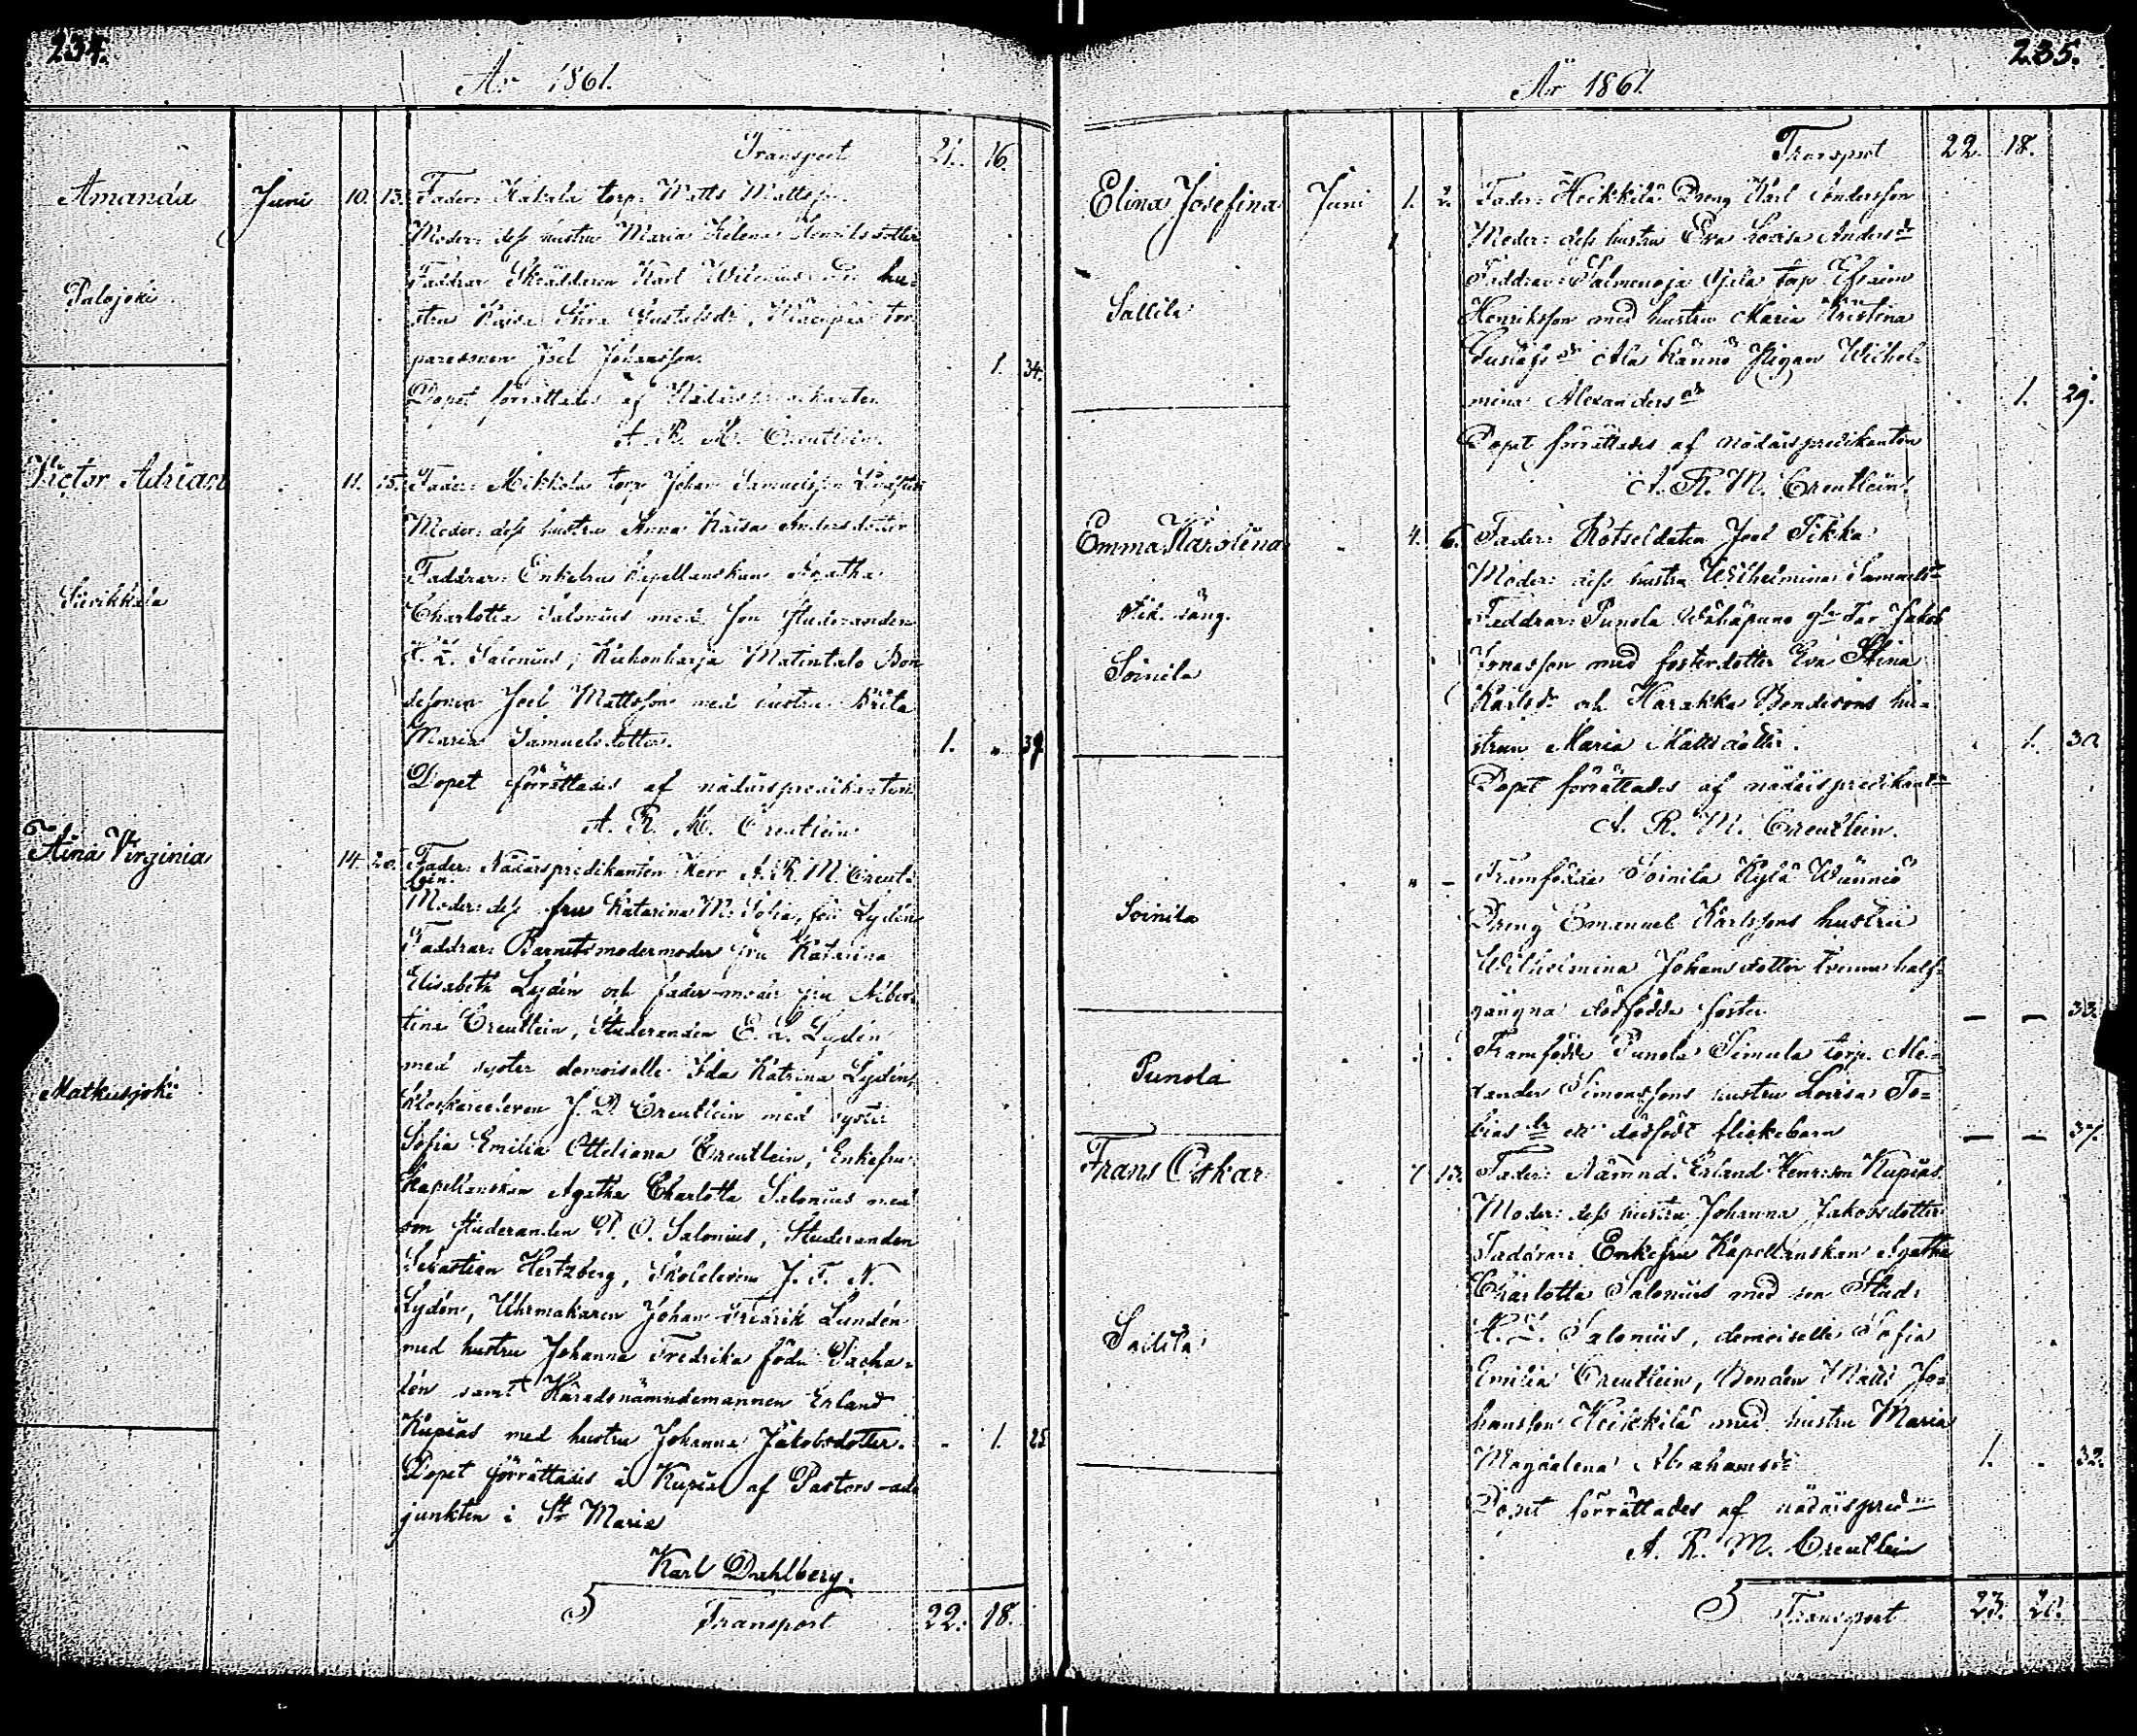 234.
År 1861.
Transport 21. 16.
Amanda Juni 10. 13. Fader: torp. Matts Mattsson
Moder: dess hustru Maria Helena Henriksdotter
Palojoki
Faddrar Skräddaren Karl hu-
stru Kaisa Stina Gustafsdr, tor-
paresonen Joel Johansson. 1. 34.
Dopet förrättades af Nådårspredikanten
A. R. M. Creutlein.
Victor Adrian 11. 15. Fader: Mikkola torp Johan Samuelsson
Moder: dess hustru Anna Kaisa Andersdotter
Faddrar: Enkefru Kapellanskan Agatha
Charlotta Salonius med son studeranden
Salonius, Matintalo Bon-
desonen Joel Mattsson med hustru Brita
Maria Samuelsdotter. 1. „
Dopet förrättades af nådårspredikanten
A. R. M. Creutlein.
Aina Virginia 14. 20. Fader: Nådårspredikanten Herr A. R. M. Creut-
lein.
Moder: dess fru Katarina M. Sofia, född Lydén
Faddrar: Barnets modermoder fru Katarina
Elisabeth Lydén och fader-moder fru Alber-
tina Creutlein, Studeranden E. L. Lydén
med syster demoiselle Ida Katrina Lydén,
Matkusjoki
J. D. Creutlein med syster
Sofia Emilia Otteliana Creutlein, Enkefru
Kapellanskan Agatha Charlotta Salonius med
son studeranden P. O. Salonius, Studeranden
Sebastian Hertzberg, Skoleleven J. F. N.
Lydén, Uhrmakaren Johan Fredrik Lundén
med hustru Johanna Fredrika född
lén samt Häradsnämndemannen Erland
Kupias med hustru Johanna Jakobsdotter. „ 1. 25
Dopet förrättades å Kupias af Pastors-ad-
junkten i St Marie
Karl Dahlberg.
5 Transport 22. 18.
235.
År 1861.
Transport 22. 18.
Elina Josefina Juni 1. 2. Fader: Heikkilä Dreng Karl Andersson
Moder: dess hustru Eva Lovisa Andersdr
Faddrar: Palmenoja torp Efraim
Sallila Henriksson med hustru Maria Kristina
Gustafsdr Ala Pigan Wilhel-
mina Alexandersdr 1. 29.
Dopet förrättades af nådårspredikanten
A. R. M. Creutlein.
Emma Karolina 4. 6. Fader: Rotesoldaten Joel Tikka
Moder: dess hustru Wilhelmina Samuelsdr
Faddrar: Punola Jakob
Jonasson med fosterdotter Eva Stina
Soinila
Karlsdr och Harakka Bondesons hu-
strun Maria Mattsdotter. 1. 30
Dopet förrättades af nådårspredikantn
A. R. M. Creutlein.
„ – Framfödde Soinila Kylä
Soinila Dreng Emanuel Karlssons hustru
Wilhelmina Johansdotter tvenne half-
gångna dödfödda foster — — 33.
Punola Framfödde Punola Simula torp. Ale-
xander Simonssons hustru Lovisa To-
biasdr ett dödfödt flickebarn — —
Frans Oskar 7 13. Fader: Nämnd. Erland Henrsson Kupias
Moder: dess hustru Johanna Jakobsdotter
Faddrar: Enkefru Kapellanskan Agatha
Charlotta Salonius med son Stud:
Salonius, demoiselle Sofia
Emilia Creutlein, Bonden Matts Jo-
hansson Heikkilä med hustru Maria
Magdalena Abrahamsdr 1. „ 32.
Dopet förrättades af nådårspredn
A. R. M. Creutlein
5 Transport 23. 20.